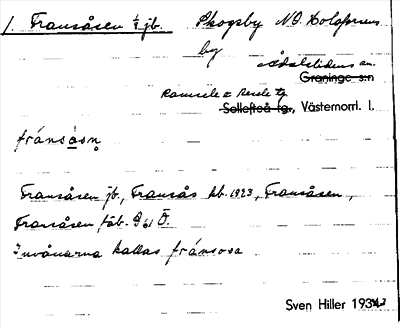 1. Fransåsen 1/2 jb. Skogsby N.O. Holafors
by
Ådalslidens sn.
Graninge s:n
Ramsele o Resele tg
Sollefteå tg., Västernorrl. l.
fránsåsn̥
Fransåsen jb., Fransås kb. 1923, Fransåsen,
Fransåsen fäb. G 61 Ö.
Invånarna kallas fránsosa
Sven Hiller 1934